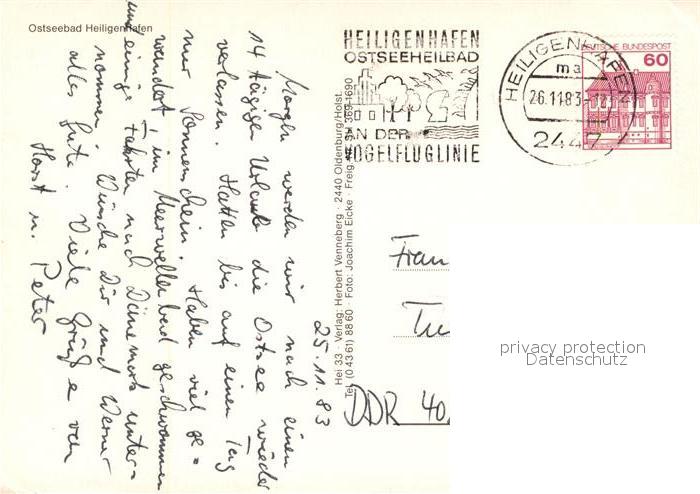 Ostseebad Heiligenhafen
25.11.83
Morgen werden wir nach einen
14 tägigen Urlaub die Ostsee wieder
verlassen. Hatten bis auf einen Tag
nur Sonnenschein. Haben viel ge=
wandert, im Meerwellenbad geschwommen
und einige Fahrten nach Dänemark unter=
nommen. Wünsche Dir und Werner
alles Gute. Viele Grüße von
Horst u. Peter
Hei 33 · Verlag: Herbert Venneberg · 2440 Oldenburg/Holst.
Tel. (0 43 61) 88 60 · Foto: Joachim Eicke · Freig. SH 369-1690
HEILIGENHAFEN
OSTSEEHEILBAD
AN DER
VOGELFLUGLINIE
HEILIGENHAFEN
ma
26.11.83-12
2447
DEUTSCHE BUNDESPOST
60
Frau
DDR 40
privacy protection
Datenschutz